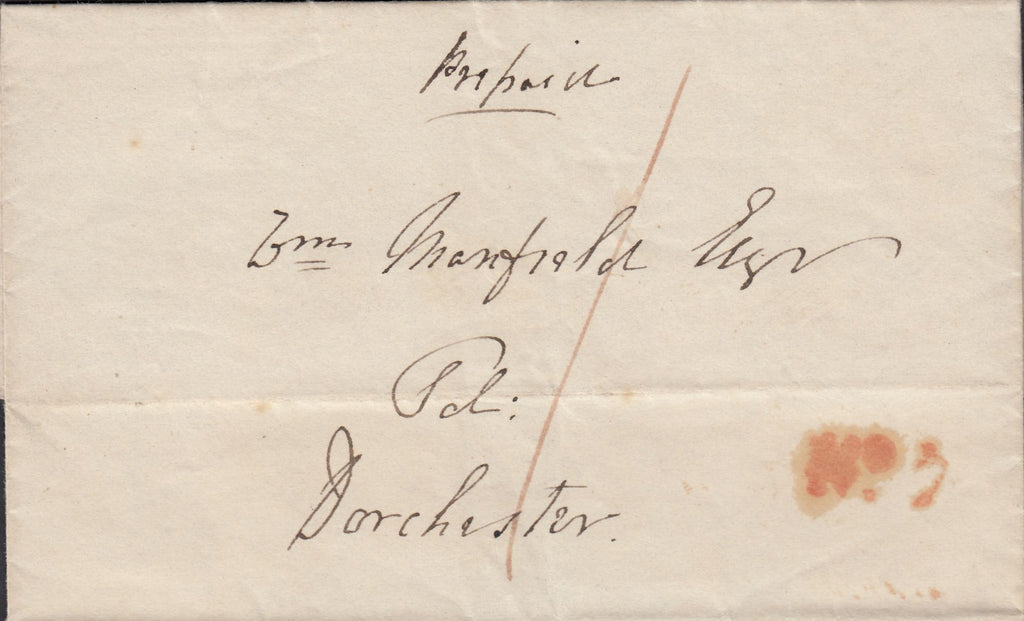 Prepaid
Wm Manfield Esqr
Pd:
Dorchester.
No. 3